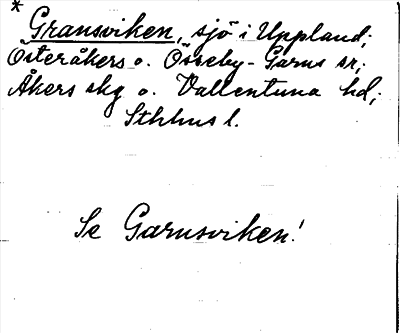 * Gransviken, sjö i Uppland;
Österåkers o. Össeby-Garns sr;
Åkers skg o. Vallentuna hd;
Sthlms l.
Se Garnsviken!